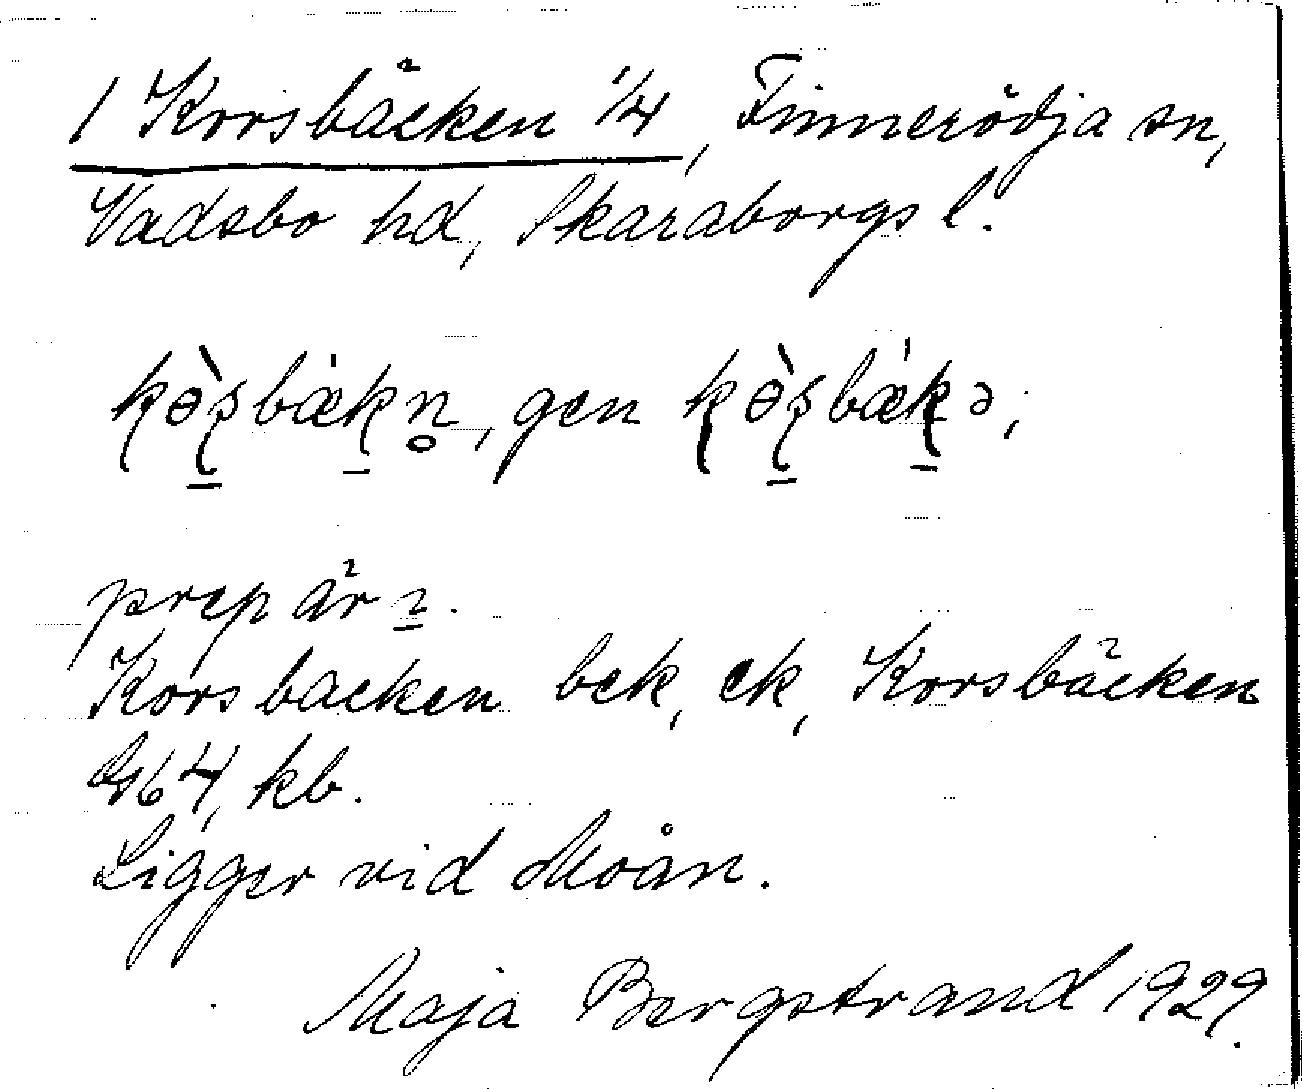 1 Korsbäcken 1/4, Finnerödja sn,
Vadsbo hd, Skaraborgs l.
kɵ̀ʂbækn̥, gen kɵ̀ʂbækə,
prep är i.
Korsbäcken bek, ek, Korsbäcken
G64, kb.
Ligger vid Moån.
Maja Bergstrand 1929.